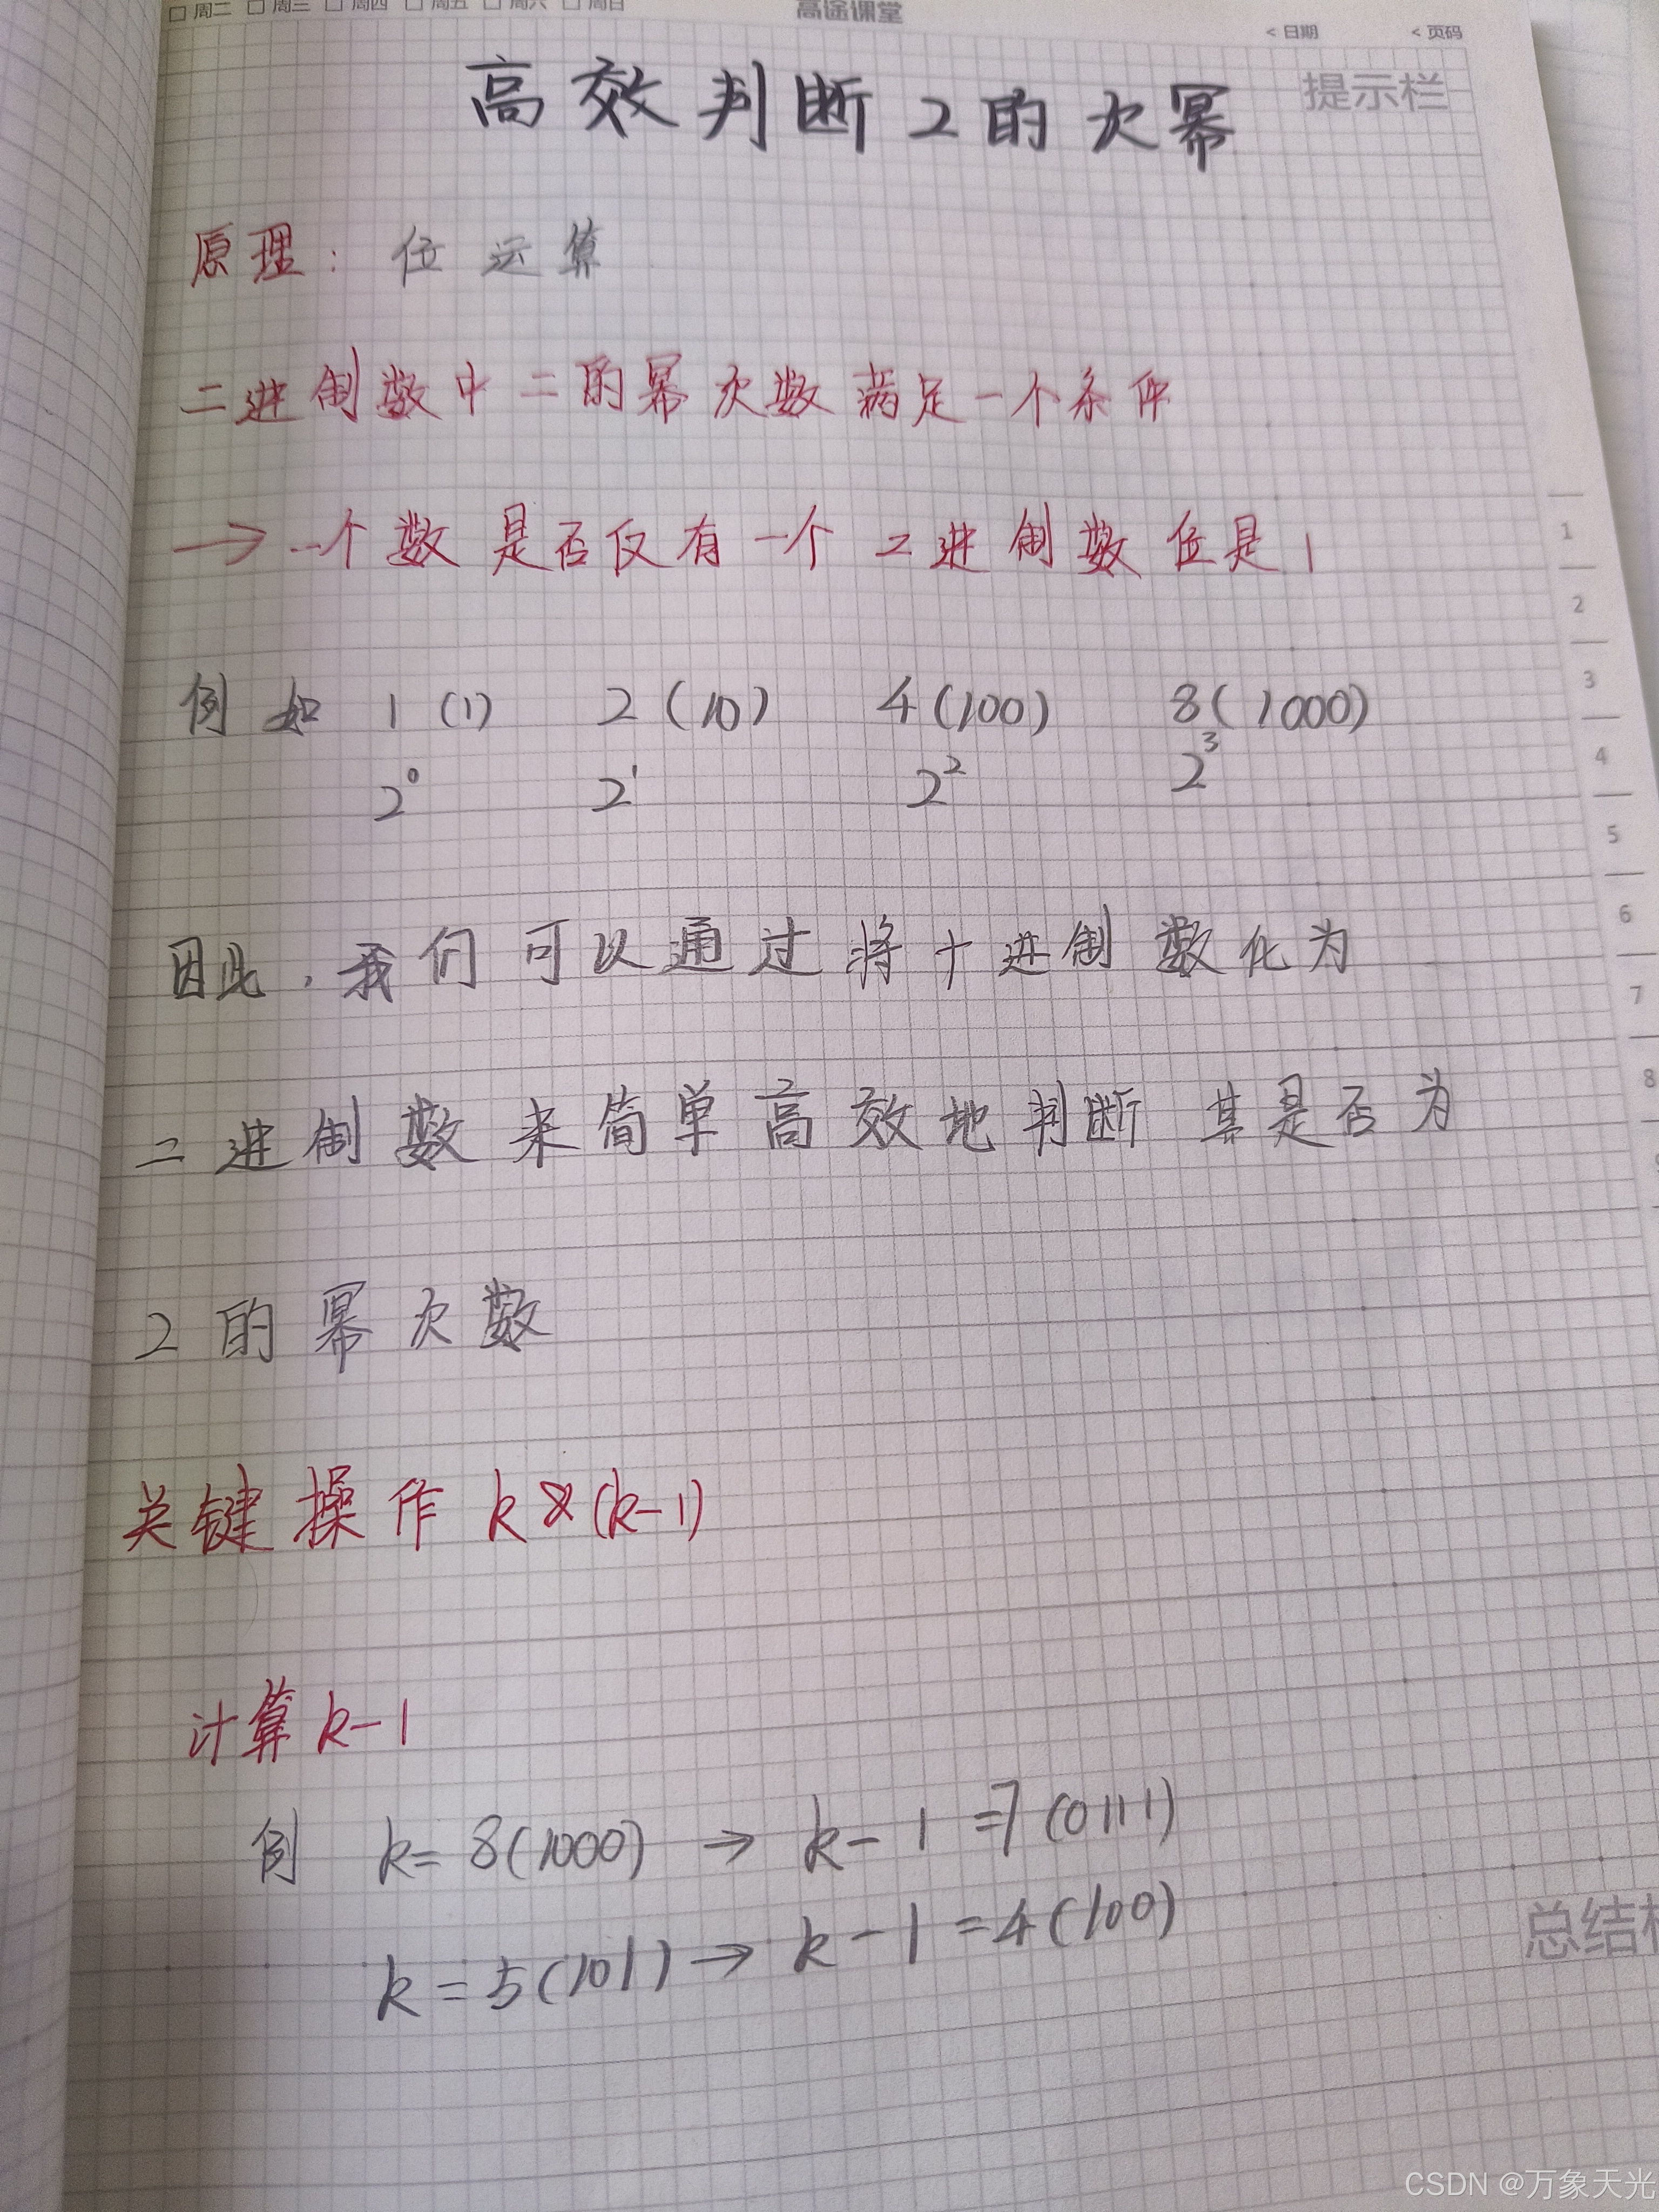 周二 周三 周四 周五 周六 周日
高途课堂
< 日期 < 页码
提示栏
高效判断2的次幂
原理：位运算
二进制数中二的幂次数满足一个条件
→一个数是否仅有一个二进制数位是1
例如 1(1) 2(10) 4(100) 8(1000)
2⁰ 2¹ 2² 2³
因此，我们可以通过将十进制数化为
二进制数来简单高效地判断其是否为
2的幂次数
关键操作 k&(k-1)
计算k-1
例 k=8(1000) → k-1=7(0111)
k=5(101) → k-1=4(100)
1
2
3
4
5
6
7
8
总结
CSDN @万象天光